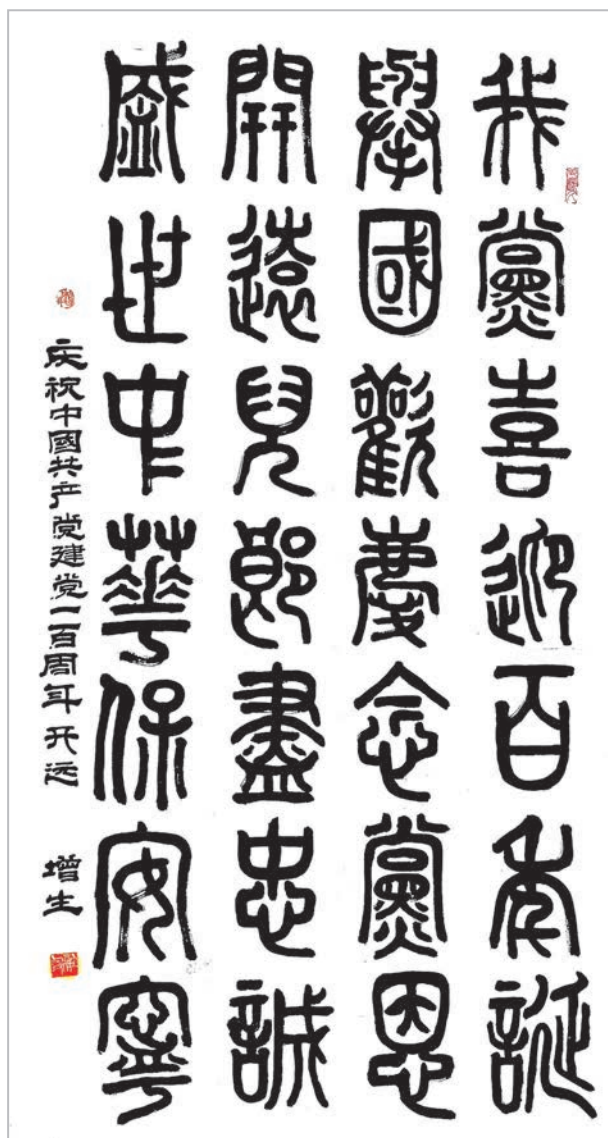 我黨喜迎百年誕
舉國歡慶念黨恩
開遠兒郎盡忠誠
盛世中華保安寧
庆祝中國共产党建党一百周年开远
增生